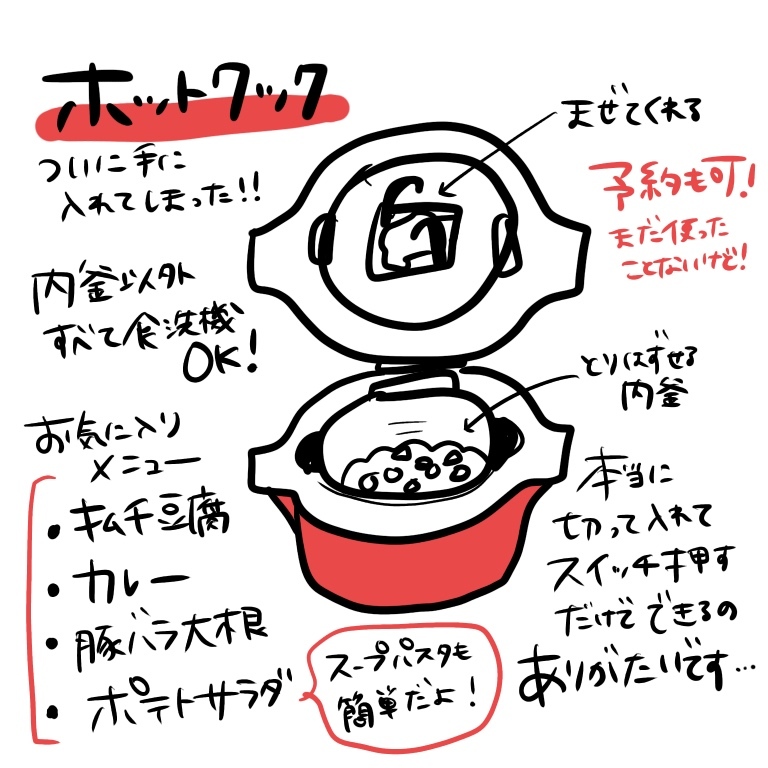 ホットクック
ついに手に
入れてしまった!!
まぜてくれる
予約も可!
まだ使った
ことないけど!
内釜以外
すべて食洗機
OK!
とりはずせる
内釜
お気に入り
メニュー
・キムチ豆腐
・カレー
・豚バラ大根
・ポテトサラダ
スープパスタも
簡単だよ!
本当に
切って入れて
スイッチ押す
だけで できるの
ありがたいです…